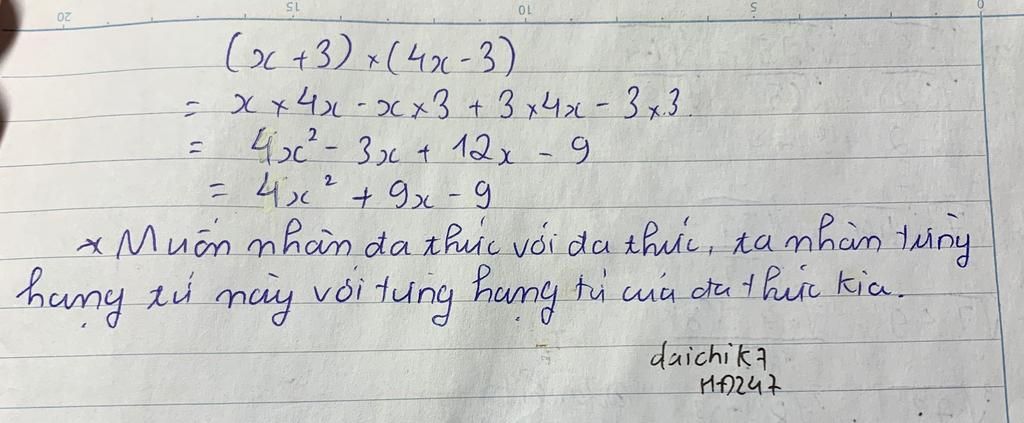 20 15 10 5 0
(x + 3) × (4x - 3)
= x × 4x - x × 3 + 3 × 4x - 3 × 3
= 4x² - 3x + 12x - 9
= 4x² + 9x - 9
* Muốn nhân đa thức với đa thức, ta nhân từng
hạng tử này với từng hạng tử của đa thức kia.
daichik7
HĐ247